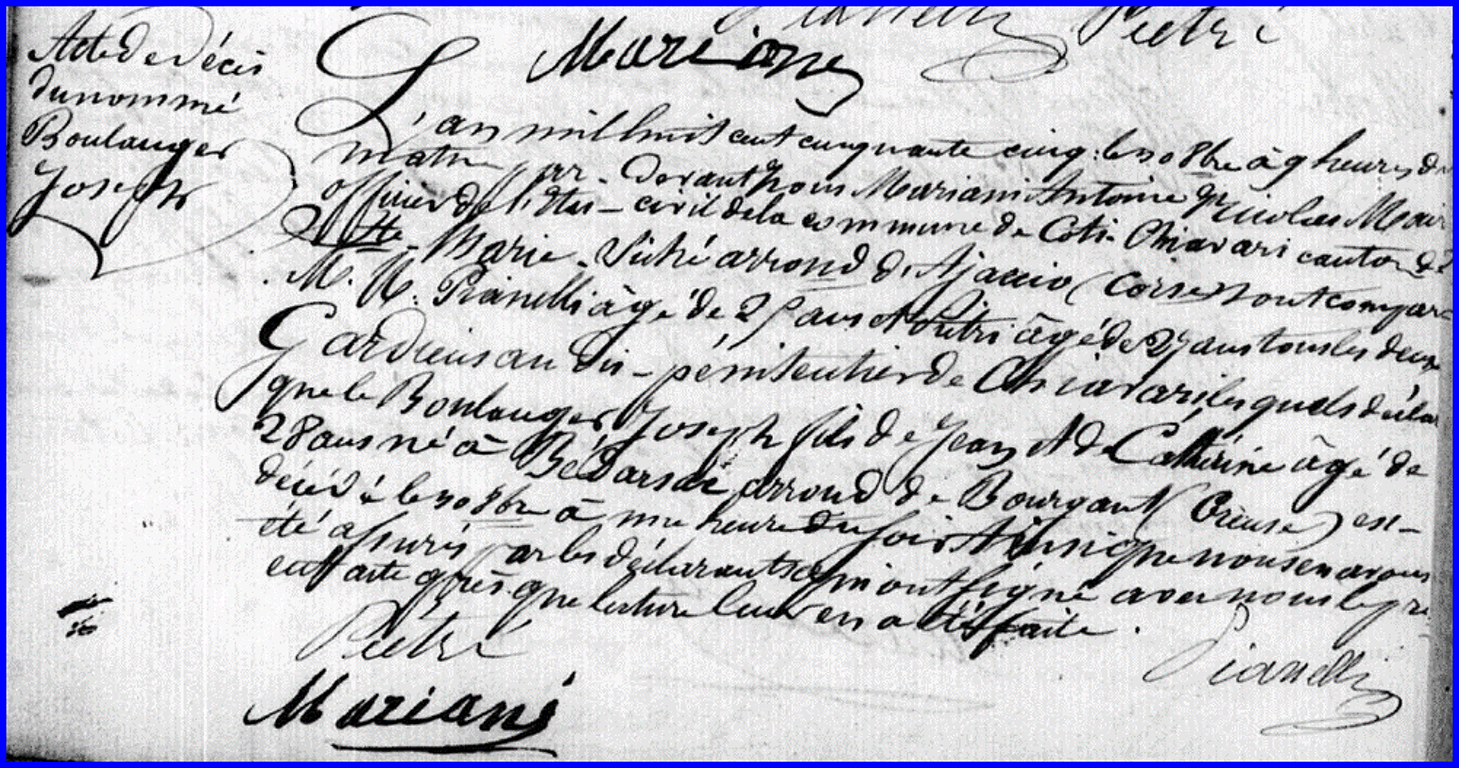 Pianelli Pietri
Mariani
Acte de décès
du nommé
Boulanger
Joseph
L'an mil huit cent cinquante cinq le 8bre à 9 heures du
matin par devant nous Mariani Antoine Nicolas Mair
officier de l'État civil de la commune de Coti Chiavari canton de
Ste Marie Siché arrond d'Ajaccio (Corse) sont compar
M. M. Pianelli âgé de ans et Pietri âgé de 27 ans tous les deux
Gardiens au pénitentier de Chiavari lesquels décla
que le Boulanger Joseph fils de Jean et de Catherine âgé de
28 ans né à arrond de Bourgant (Creuse) est
décédé le 8bre à une heure du soir Ainsi que nous en avons
été assurés par les déclarants qui ont signé avec nous le pré
acte après que lecture leur en a été faite.
Pietri Pianelli
Mariani